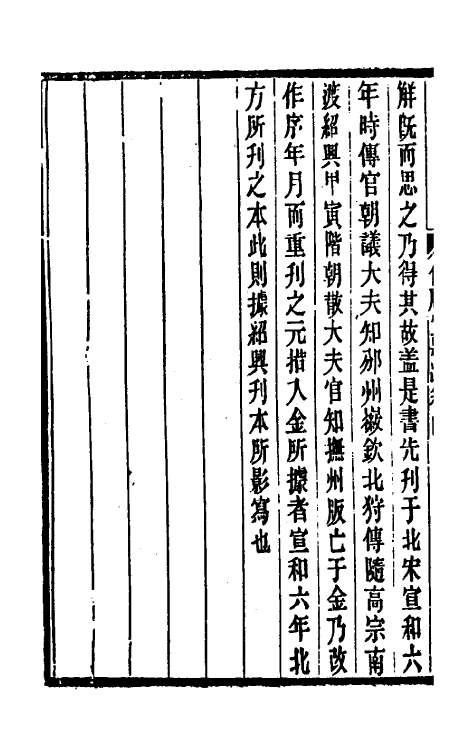 解既而思之乃得其故盖是書先刊于北宋宣和六
年時傳官朝議大夫知邠州徽欽北狩傳隨高宗南
渡紹興甲寅階朝散大夫官知撫州版亡于金乃改
作序年月而重刊之元措入金所據者宣和六年北
方所刊之本此則據紹興刊本所影寫也